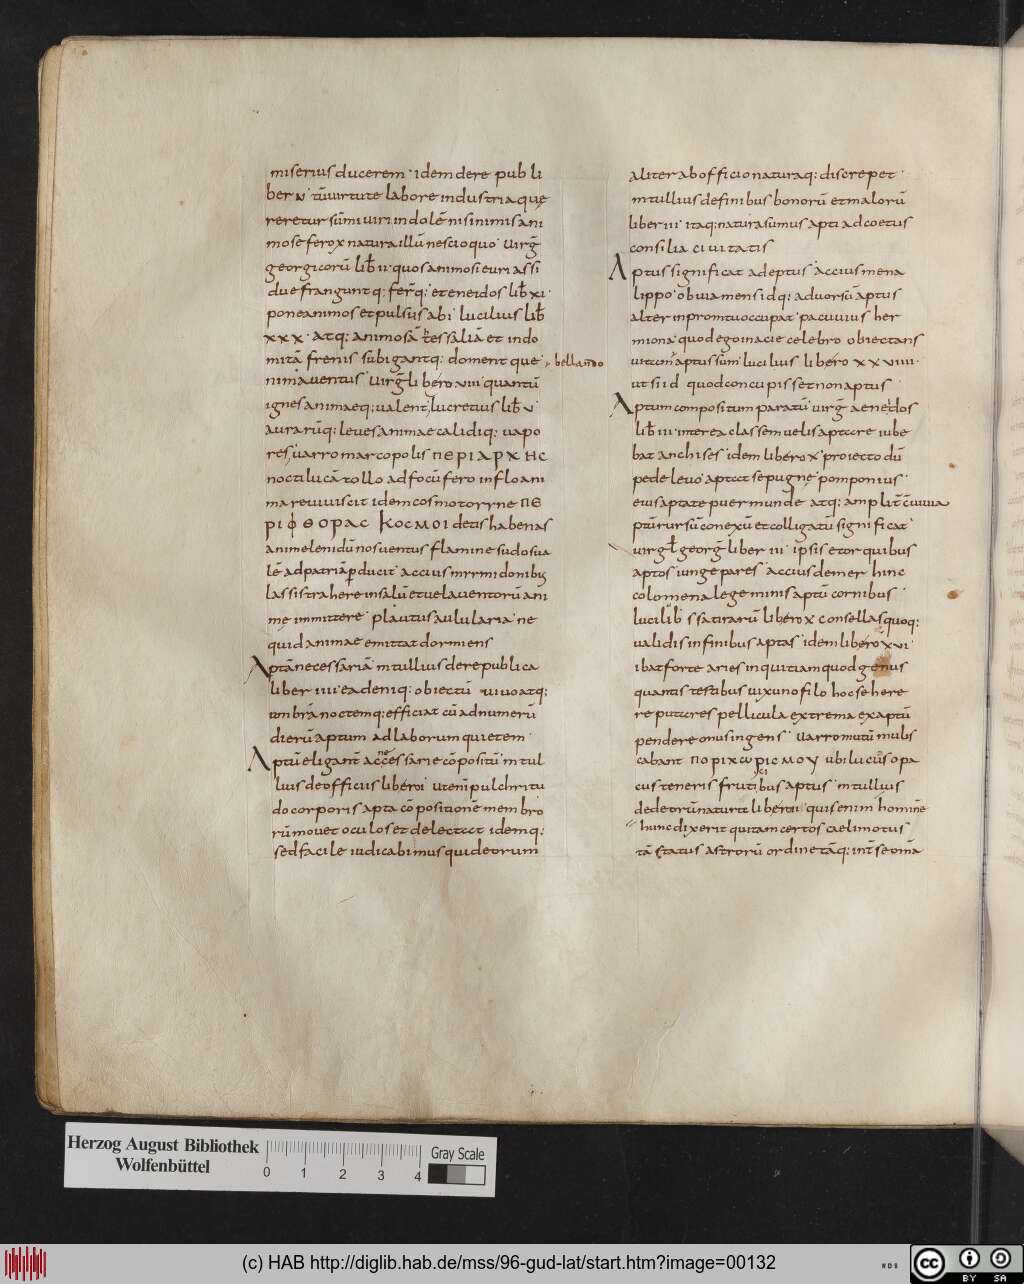 miserius ducerem · idem dere pub li
ber v · tū uirtute labore industriaque
reretur sūmi uiri indolē nisi nimis ani
mose ferox natura illū nescio quo · uirḡ
georgicorū lib̄ ii · quos animosi euri assi
due frangunt q; fer̄q; et eneidos lib̄ xi ·
pone animos et pulsus abi · lucilius lib̄
xxx · atq; animosā tessaliā et indo
mitā frenis subigantq; doment que · bellando
nima uentus · uirgli bero viii · quantū
ignes animaeq; ualent, lucretius lib̄ v
aurarūq; leues animae calidiq; uapo
res, uarro marcopolis περιαρχης
noctilucā tollo ad focū fero inflo ani
ma reuiuiscit idem cosmotoryne πε
ριφθορας κοσμοι detis habenas
anime leni dū nos uentus flamine sudo sua
lē ad patriā p̄ducit · accius mrmidonibus
lassis trahere in salū et uela uentorū ani
me immittere · plautus aulularia · ne
quid animae emittat dormiens
Aptā necessariā · m tullius de republica
liber iiii · ea deniq; obiectū uiuo atq;
umbrā noctemq; efficiat cū ad numerū
dierū aptum ad laborum quietem ·
Aptū eligant accnecessarie cōpositū m tul
lius de officiis libero i · ut enim pulchritu
do corporis apta cōpositionē membro
rū mouet oculos et delectat idemq;
sed facile iudicabimus quid eorum
aliter ab officio naturaq; discrepet ·
m tullius definibus bonorū et malorū
liber iii · itaq; natura sumus apti ad coetus
consilia ciuitatis
Aptus significat adeptus · accius mena
lippo · obuia mens idq; aduorsū aptus
alter in promtu occupat · pacuuius her
miona · quod ego in acie celebro obiectans
uitam aptus sum · lucilius libero xxviiii ·
ut siid quod concupisset non aptus
Aptum compositum paratū · uirḡ aenedos
lib̄ iii · interea classem uelis aptare iube
bat anchises · idem libero x · proiecto dū
pede leuo aptat se pugne · pomponius ·
eius aptate puer munde atq; amplit̄
ptū rursū conexū et colligatū significat
uirgl̄ georḡ liber iii · ipsis e torquibus
aptos iunge pares · accius demer hinc
colomena lege minis aptū cornibus ·
lucilib̄ s satirarū libero x consellas quoq;
ualidis infinibus aptas · idem libero xvi ·
ibat forte aries inquit iam quod genus
quantis testibus uix uno filo hoc se here
re putares pellicula extrema exaptū
pendere onus ingens · uarro mutū mulis
cabant ποριχωρισμου ubi lucus opa
cus teneris frutibus aptus · m tullius
de deorū natura libero i · quis enim homine
hunc dixerit qui tam certos caeli motus
tā status astrorū ordine tāq; int̄ se omīa
Herzog August Bibliothek
Wolfenbüttel
0 1 2 3 4
Gray Scale
(c) HAB http://diglib.hab.de/mss/96-gud-lat/start.htm?image=00132
WDB
cc BY SA